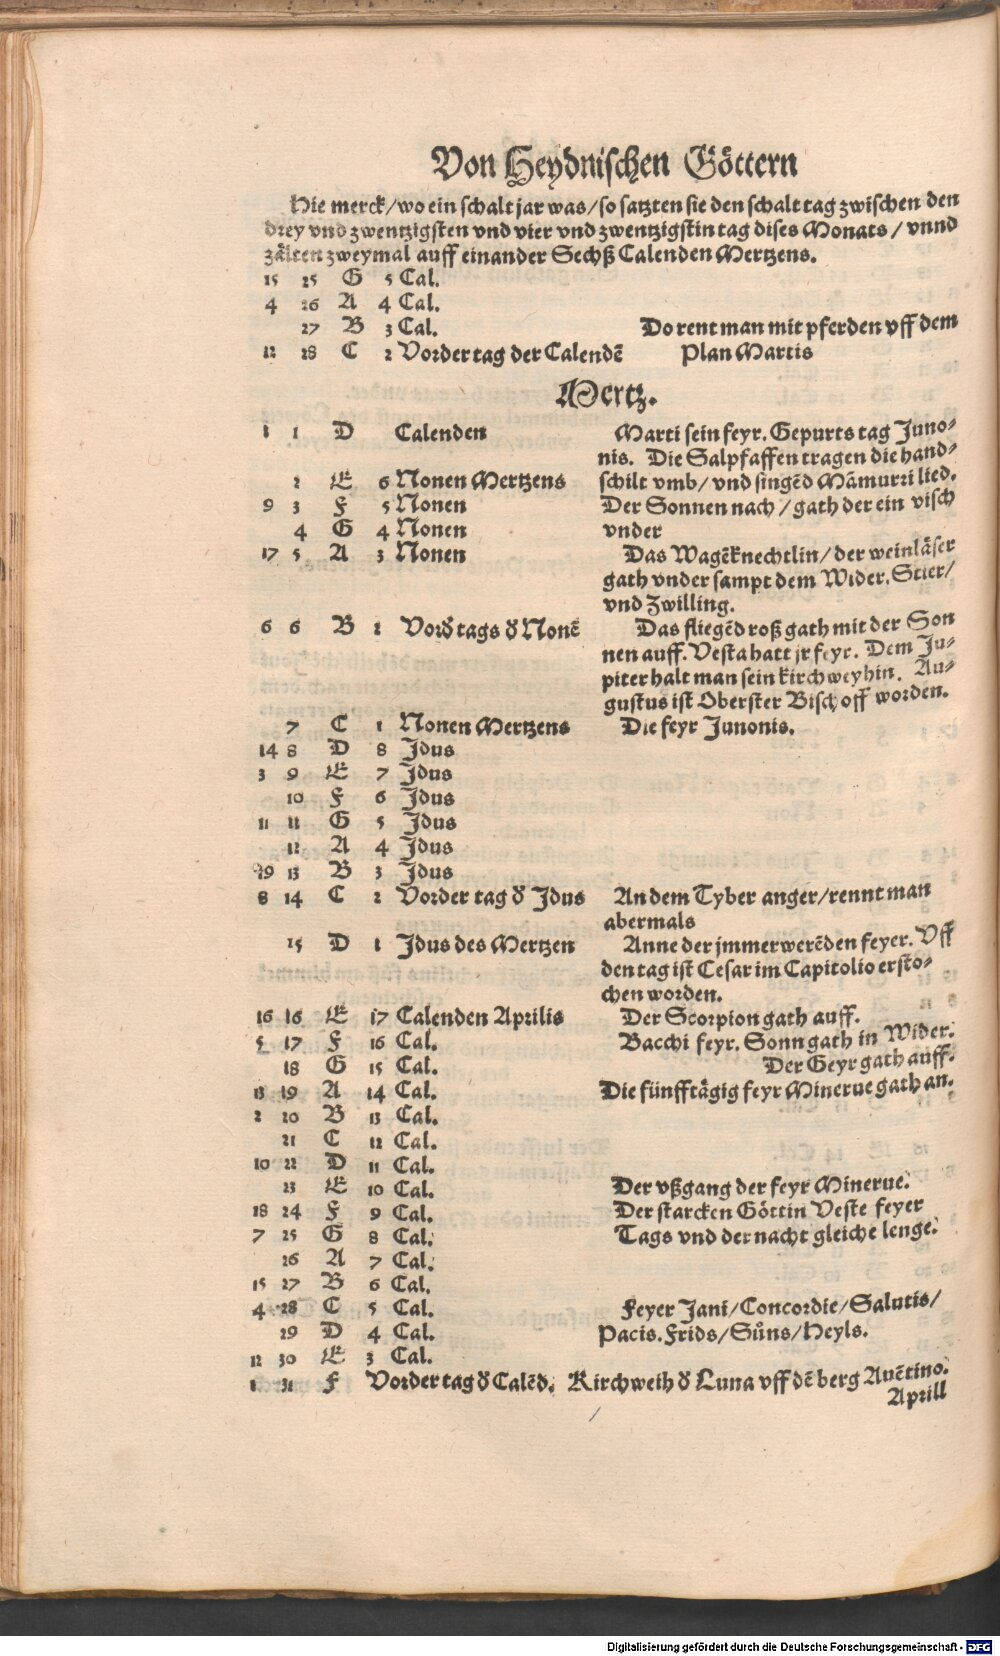 Von Heydnischen Göttern
Hie merck/wo ein schalt jar was/so satzten sie den schalt tag zwischen den
drey vnd zwentzigsten vnd vier vnd zwentzigstin tag dises Monats/vnnd
zälten zweymal auff einander Sechß Calenden Mertzens.
15 25 G 5 Cal.
4 26 A 4 Cal.
27 B 3 Cal. Do rent man mit pferden vff dem
12 28 C 2 Vorder tag der Calendẽ Plan Martis
Mertz.
1 1 D Calenden Marti sein feyr. Gepurts tag Juno-
nis. Die Salpfaffen tragen die hand-
2 E 6 Nonen Mertzens schilt vmb/vnd singẽd Mãmurri lied.
9 3 F 5 Nonen Der Sonnen nach/gath der ein visch
4 G 4 Nonen vnder
17 5 A 3 Nonen Das Wagẽknechtlin/der weinläser
gath vnder sampt dem Wider. Stier/
vnd Zwilling.
6 6 B 2 Vorđ tags đ Nonẽ Das fliegẽd roß gath mit der Son
nen auff. Vesta hatt jr feyr. Dem Ju-
piter halt man sein kirchweyhin. Au-
gustus ist Oberster Bischoff worden.
7 C 1 Nonen Mertzens Die feyr Junonis.
14 8 D 8 Jdus
3 9 E 7 Jdus
10 F 6 Jdus
11 11 G 5 Jdus
12 A 4 Jdus
29 13 B 3 Jdus
8 14 C 2 Vorder tag đ Jdus An dem Tyber anger/rennt man
abermals
15 D 1 Jdus des Mertzen Anne der jmmerwerẽden feyer. Vff
den tag ist Cesar im Capitolio ersto-
chen worden.
16 16 E 17 Calenden Aprilis Der Scorpion gath auff.
5 17 F 16 Cal. Bacchi feyr. Sonn gath in Wider.
18 G 15 Cal. Der Geyr gath auff.
13 19 A 14 Cal. Die fünfftägig feyr Minerue gath an.
2 20 B 13 Cal.
21 C 12 Cal.
10 22 D 11 Cal.
23 E 10 Cal. Der vßgang der feyr Minerue.
18 24 F 9 Cal. Der starcken Göttin Veste feyer
7 25 G 8 Cal. Tags vnd der nacht gleiche lenge.
26 A 7 Cal.
15 27 B 6 Cal.
4 28 C 5 Cal. Feyer Jani/Concordie/Salutis/
29 D 4 Cal. Pacis. Frids/Sůns/Heyls.
12 30 E 3 Cal.
1 31 F Vorder tag đ Calẽd. Kirchweih đ Luna vff dẽ berg Auẽtino.
Aprill
Digitalisierung gefördert durch die Deutsche Forschungsgemeinschaft - DFG